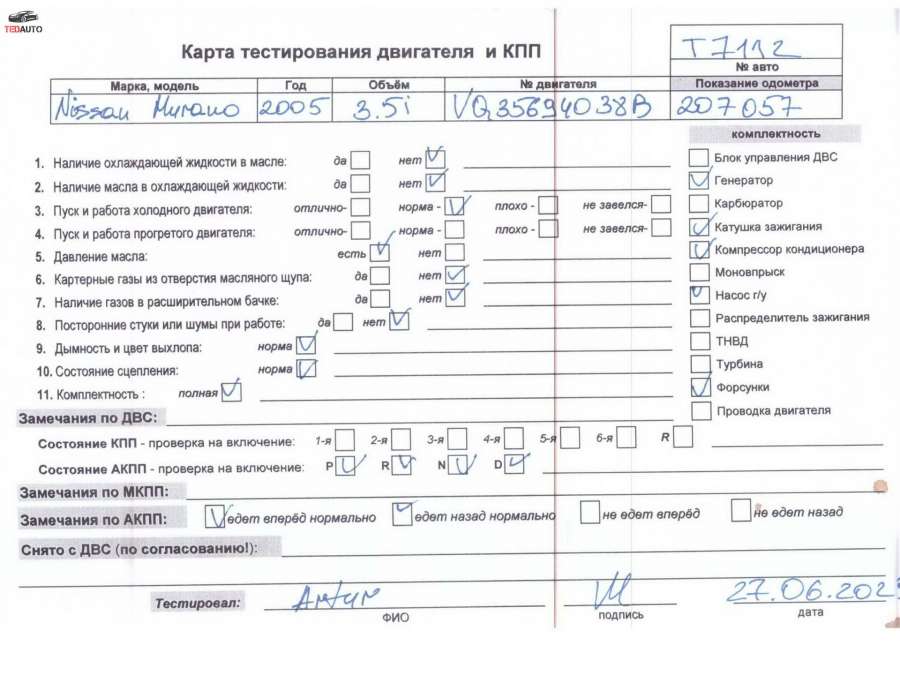 TEDAUTO
Карта тестирования двигателя и КПП
T7132
№ авто
Марка, модель Год Объём № двигателя Показание одометра
Nissan Murano 2005 3.5i VQ35694038B 207057
комплектность
1. Наличие охлаждающей жидкости в масле: да нет
2. Наличие масла в охлаждающей жидкости: да нет
3. Пуск и работа холодного двигателя: отлично- норма - плохо - не завелся-
4. Пуск и работа прогретого двигателя: отлично- норма - плохо - не завелся-
5. Давление масла: есть нет
6. Картерные газы из отверстия масляного щупа: да нет
7. Наличие газов в расширительном бачке: да нет
8. Посторонние стуки или шумы при работе: да нет
9. Дымность и цвет выхлопа: норма
10. Состояние сцепления: норма
11. Комплектность : полная
Блок управления ДВС
Генератор
Карбюратор
Катушка зажигания
Компрессор кондиционера
Моновпрыск
Насос г/у
Распределитель зажигания
ТНВД
Турбина
Форсунки
Проводка двигателя
Замечания по ДВС:
Состояние КПП - проверка на включение: 1-я 2-я 3-я 4-я 5-я 6-я R
Состояние АКПП - проверка на включение: P R N D
Замечания по МКПП:
Замечания по АКПП: едет вперёд нормально едет назад нормально не едет вперёд не едет назад
Снято с ДВС (по согласованию!):
Тестировал: Артур 27.06.202
ФИО подпись дата